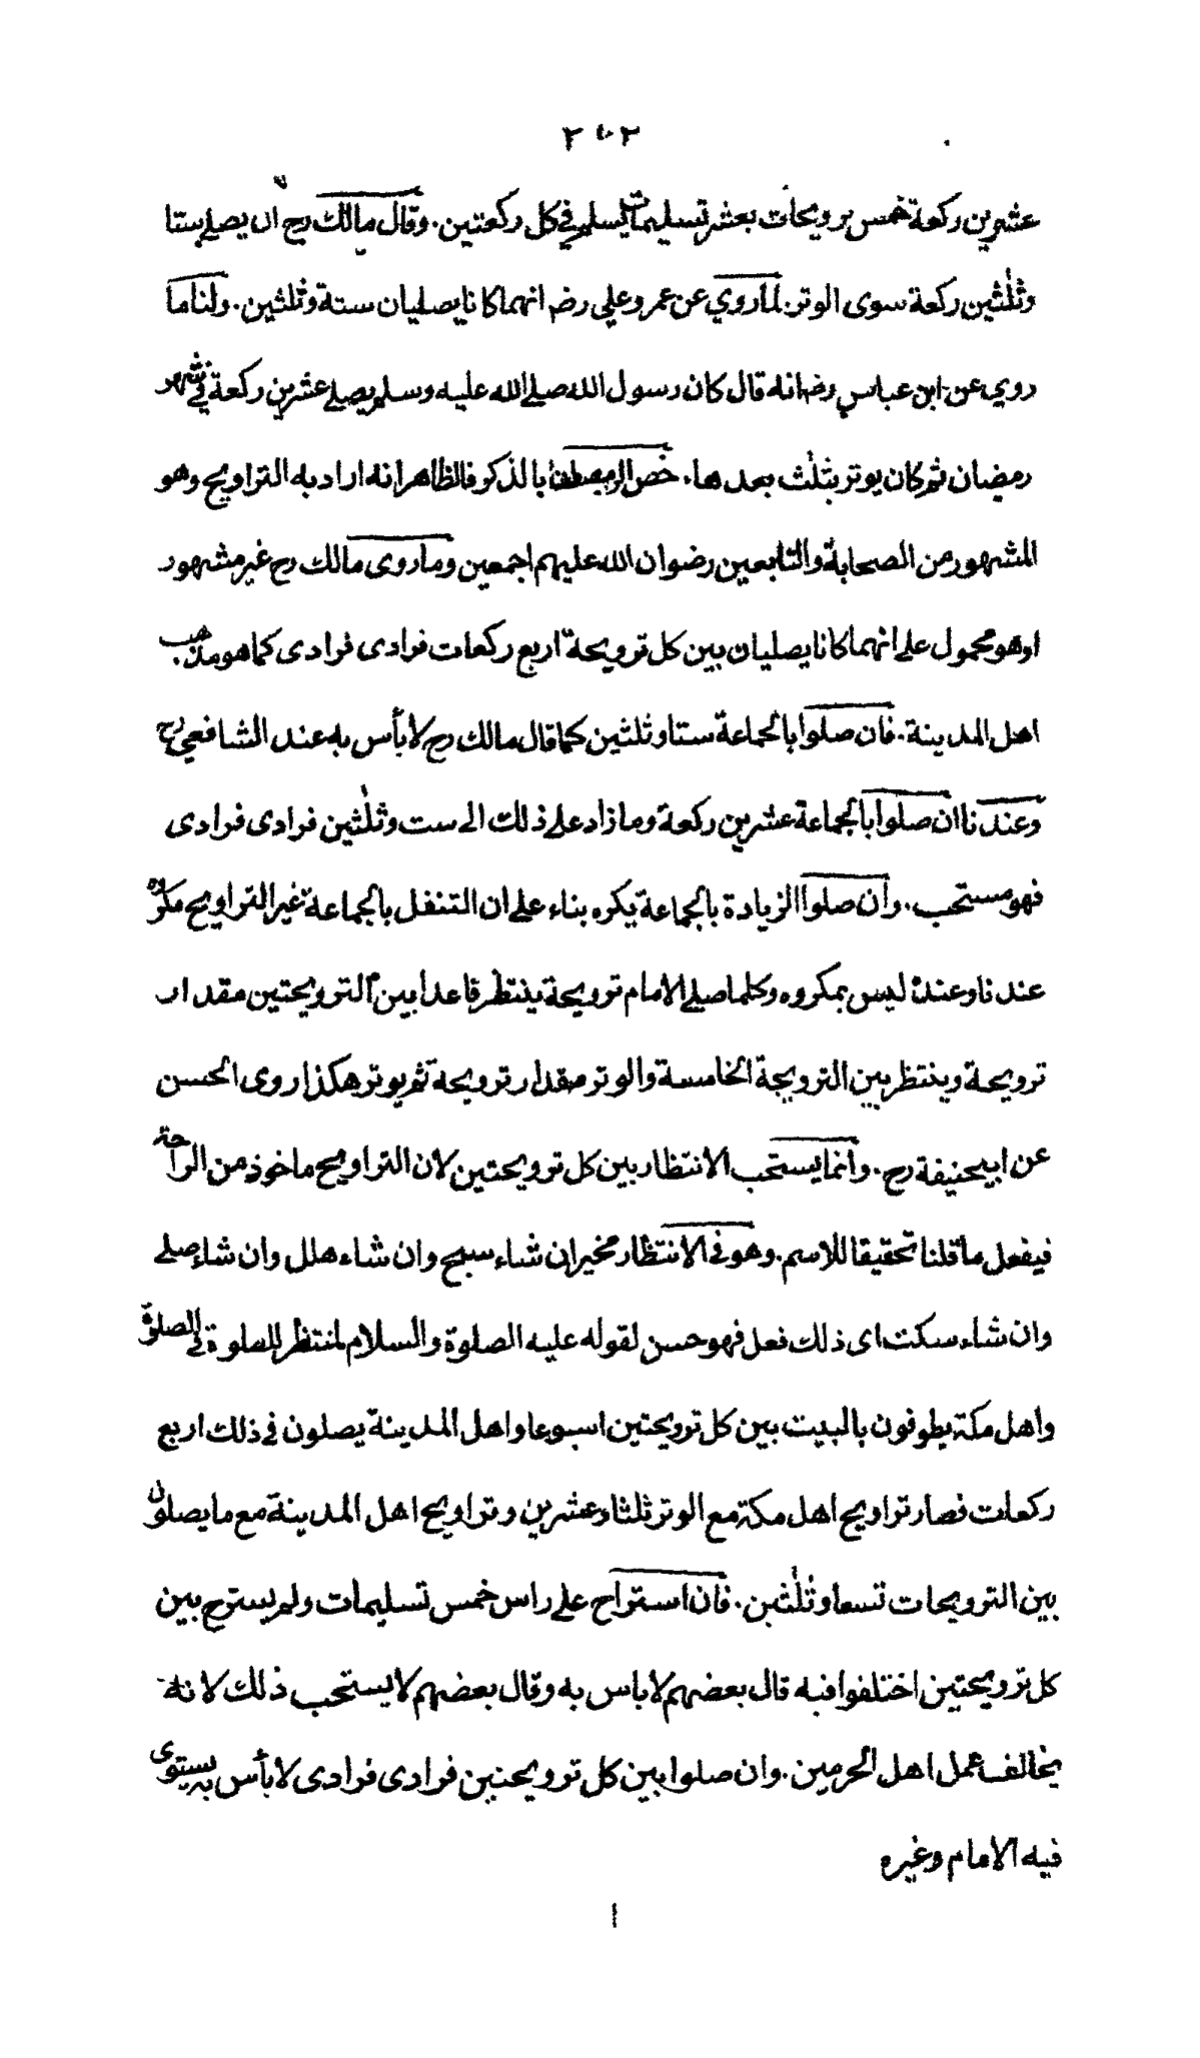 ٢٠٢
عشرين ركعة خمس ترويحات بعشر تسليمات يسلم في كل ركعتين. وقال مالك رح ان يصلي ستا
وثلثين ركعة سوى الوتر. لما روي عن عمر وعلي رضـ انهما كانا يصليان ستة وثلثين. ولنا ما
روي عن ابن عباس رضـ انه قال كان رسول الله صلى الله عليه وسلم يصلي عشرين ركعة في شهر
رمضان ثم كان يوتر بثلث بعدها. خص رمضان بالذكر فالظاهر انه اراد به التراويح وهو
المشهور من الصحابة والتابعين رضوان الله عليهم اجمعين وما روى مالك رح غير مشهور
او هو محمول على انهما كانا يصليان بين كل ترويحة اربع ركعات فرادى فرادى كما هو مذهب
اهل المدينة. فان صلوا بالجماعة ستا وثلثين كما قال مالك رح لا بأس به عند الشافعي رح
وعندنا ان صلوا بالجماعة عشرين ركعة وما زاد على ذلك الى ست وثلثين فرادى فرادى
فهو مستحب. وان صلوا الزيادة بالجماعة يكره بناء على ان التنفل بالجماعة غير التراويح مكروه
عندنا وعنده ليس بمكروه وكلما صلى الامام ترويحة ينتظر قاعدا بين الترويحتين مقدار
ترويحة وينتظر بين الترويحة الخامسة والوتر مقدار ترويحة ثم يوتر هكذا روى الحسن
عن ابيحنيفة رح. وانما يستحب الانتظار بين كل ترويحتين لان التراويح ماخوذ من الراحة
فيفعل ما قلنا تحقيقا للاسم. وهو في الانتظار مخير ان شاء سبح وان شاء هلل وان شاء صلى
وان شاء سكت اى ذلك فعل فهو حسن لقوله عليه الصلوة والسلام لمنتظر للصلوة في الصلوة
واهل مكة يطوفون بالبيت بين كل ترويحتين اسبوعا واهل المدينة يصلون في ذلك اربع
ركعات فصار تراويح اهل مكة مع الوتر ثلثا وعشرين وتراويح اهل المدينة مع ما يصلون
بين الترويحات تسعا وثلثين. فان استراح على راس خمس تسليمات ولم يسترح بين
كل ترويحتين اختلفوا فيه قال بعضهم لا باس به وقال بعضهم لا يستحب ذلك لانه
يخالف عمل اهل الحرمين. وان صلوا بين كل ترويحتين فرادى فرادى لا بأس به يستوى
فيه الامام وغيره
ا